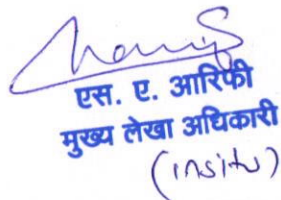 एस. ए. आरिफी
मुख्य लेखा अधिकारी
(insitu)